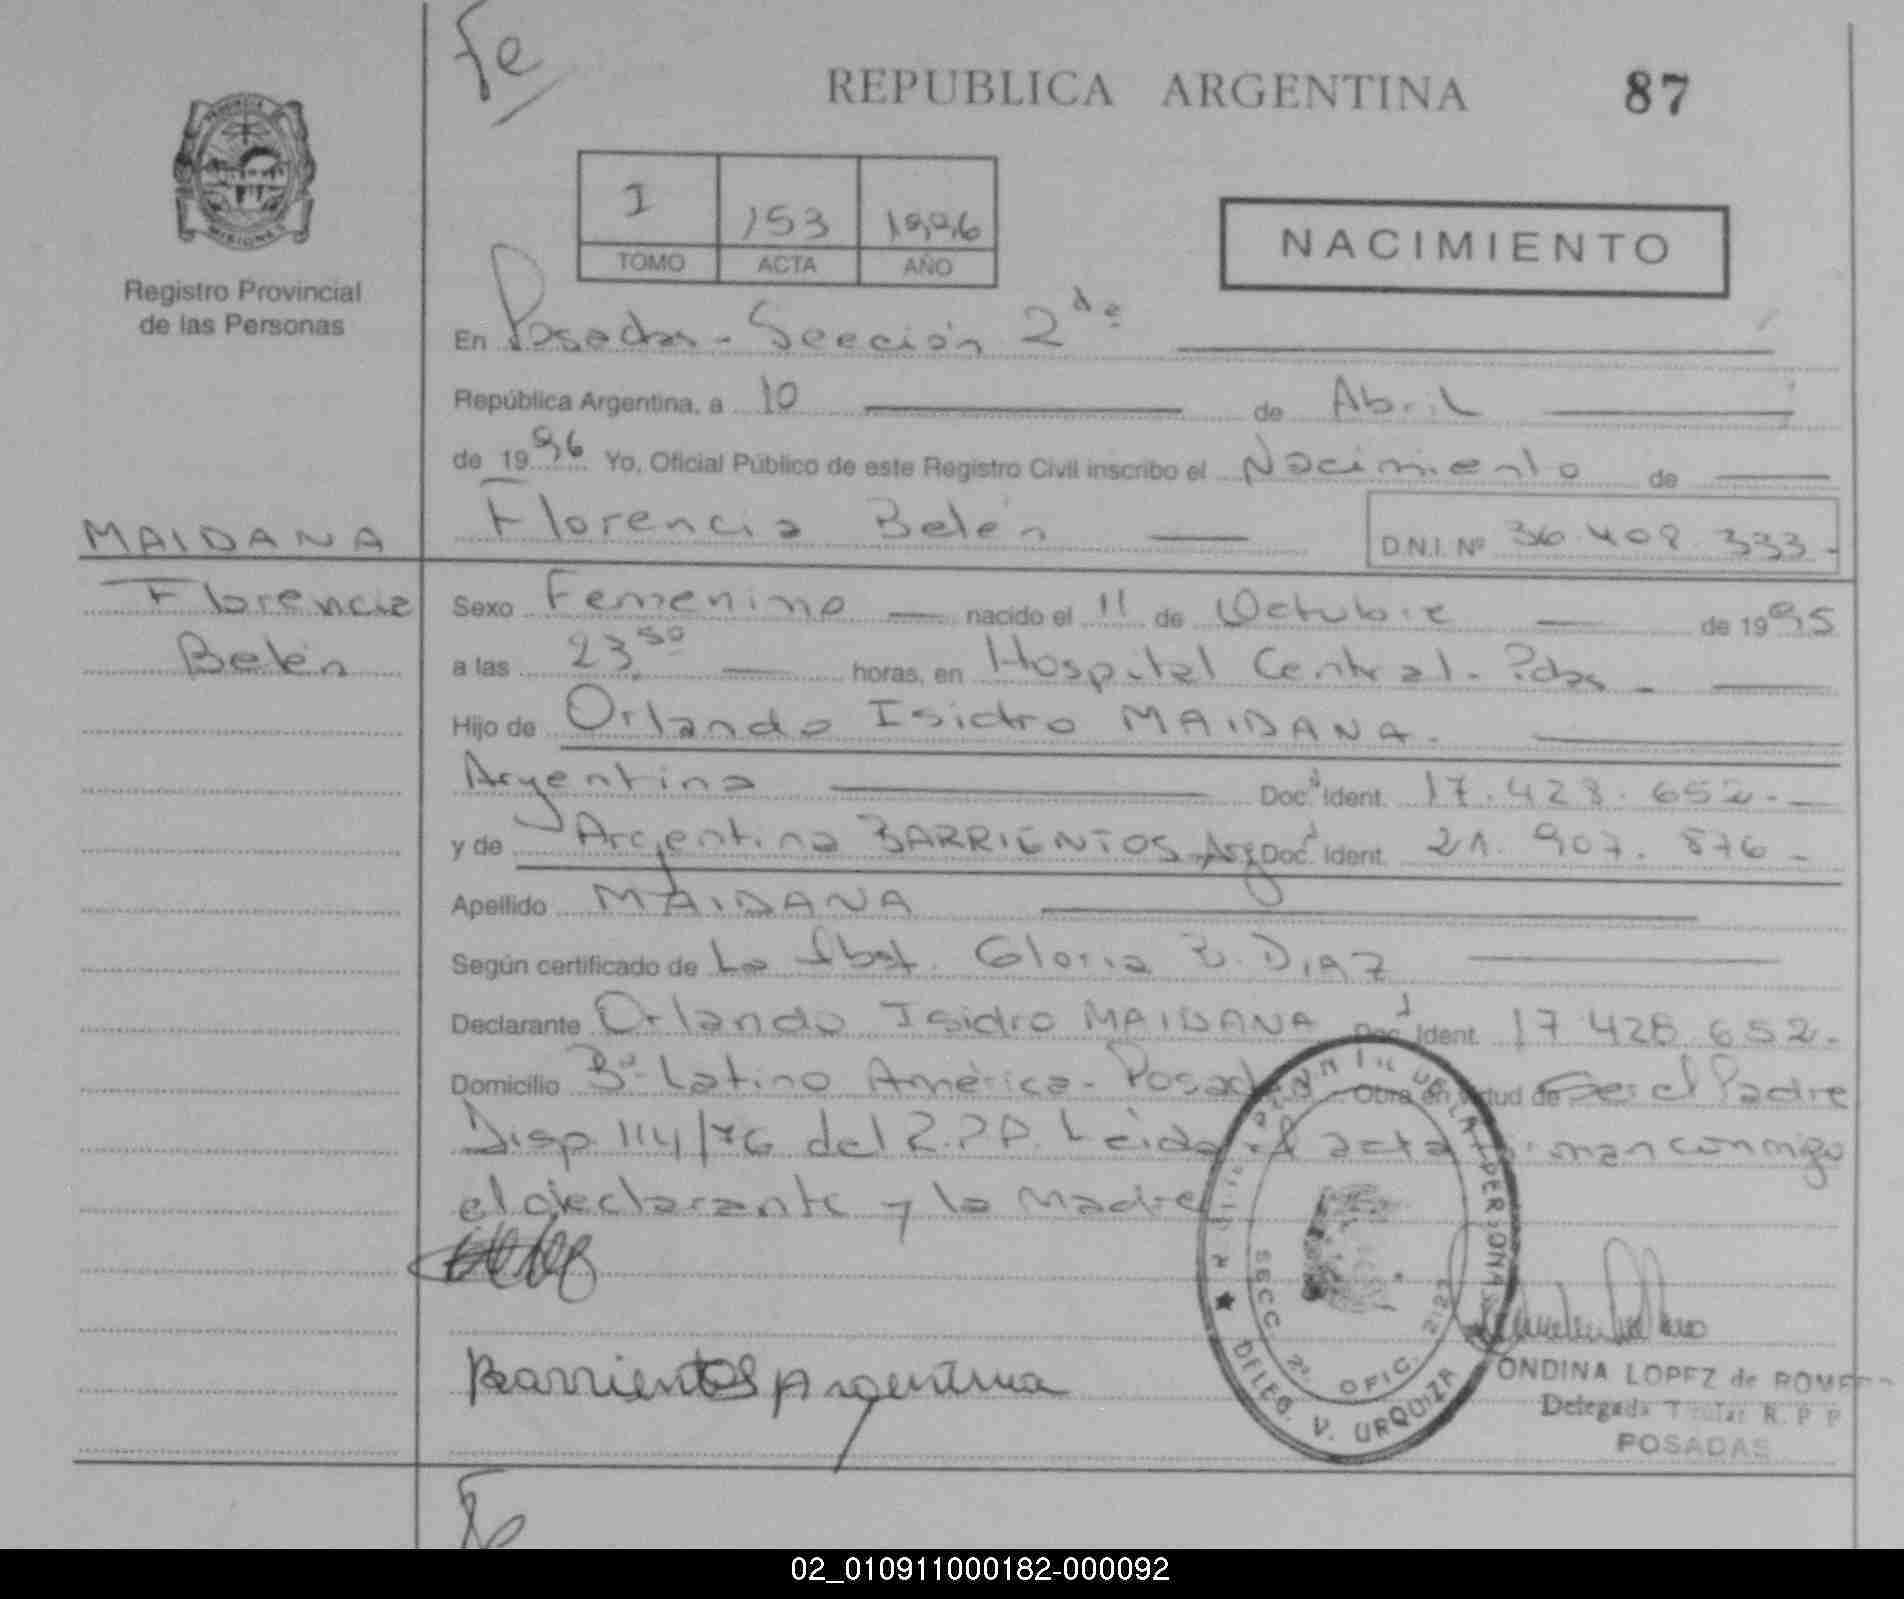 Fe
REPUBLICA ARGENTINA 87
PROVINCIA
MISIONES
Registro Provincial
de las Personas
I 153 1996
TOMO ACTA AÑO
NACIMIENTO
En Posadas - Sección 2da
República Argentina, a 10 de Abril
de 1996 Yo, Oficial Público de este Registro Civil inscribo el Nacimiento de
MAIDANA Florencia Belén D.N.I. Nº 36.408.333-
Florencia Sexo Femenino nacido el 11 de Octubre de 1995
Belén a las 23,50 horas, en Hospital Central - Pdas -
Hijo de Orlando Isidro MAIDANA.
Argentina Doc. Ident. 17.428.652.-
y de Argentina BARRIENTOS, Arg Doc. Ident. 21.907.876-
Apellido MAIDANA
Según certificado de La Obst. Gloria B. DIAZ
Declarante Orlando Isidro MAIDANA Doc. Ident. 17.428.652.-
Domicilio Bº Latino América - Posadas Obra en virtud de Ser el Padre
Disp. 114/76 del R.P.P. Leida el acta firman conmigo
el declarante y la Madre
Barrientos Argentina
SECC. 2º OFIC.
DELEG. V. URQUIZA
ONDINA LOPEZ de ROMERO
Delegada Titular R. P. P
POSADAS
02_010911000182-000092